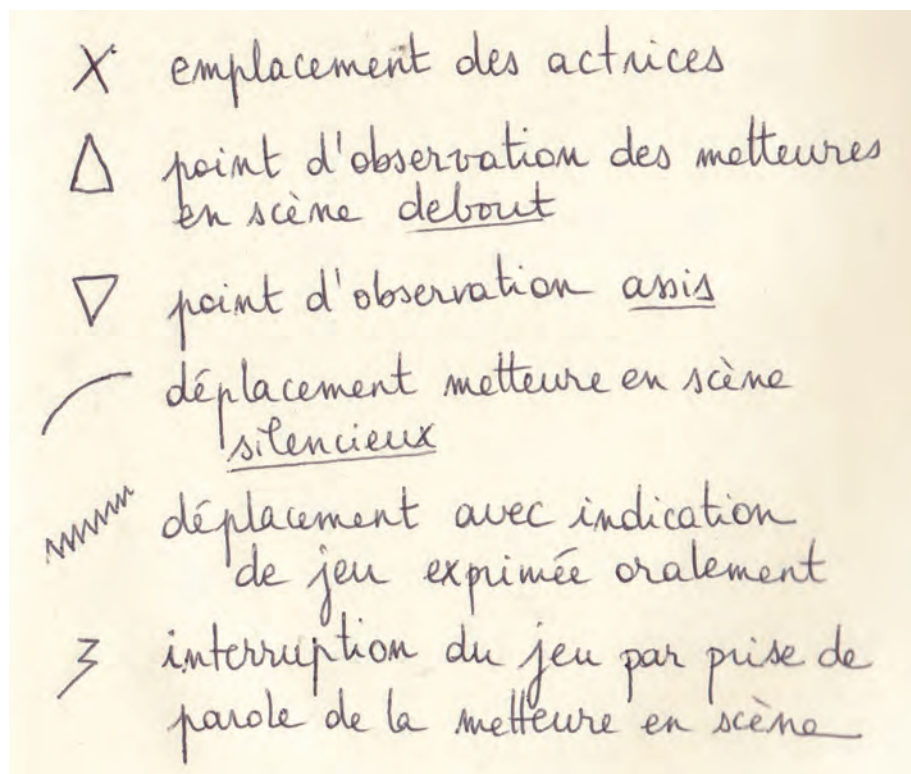 X emplacement des actrices
point d'observation des metteures
en scène debout
point d'observation assis
déplacement metteure en scène
silencieux
déplacement avec indication
de jeu exprimée oralement
interruption du jeu par prise de
parole de la metteure en scène